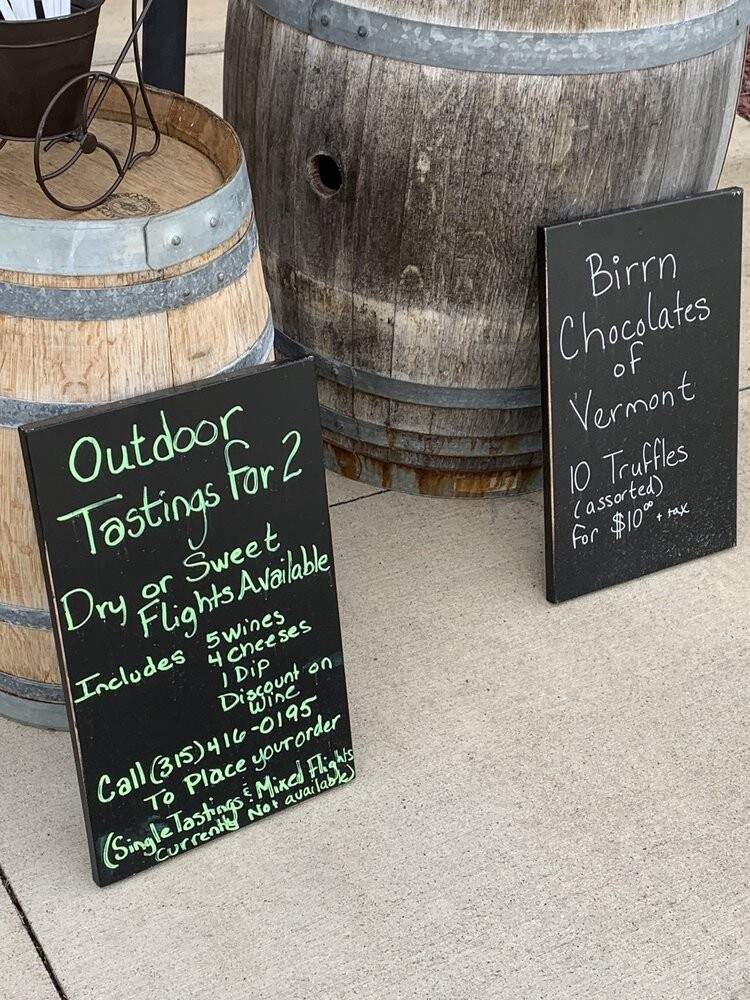 Outdoor
Tastings for 2
Dry or Sweet
Flights Available
Includes 5 wines
4 cheeses
1 Dip
Discount on
Wine
Call (315) 416-0195
To Place your order
(Single Tastings & Mixed Flights
Currently Not available)
Birrn
Chocolates
of
Vermont
10 Truffles
(assorted)
for $10⁰⁰ + tax